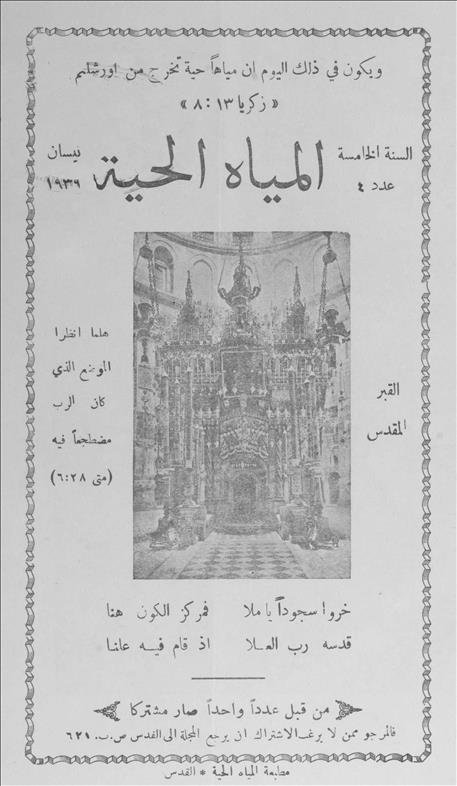 ويكون في ذلك اليوم إن مياهاً حية تخرج من اورشليم
« زكريا ١٣:٨ »
السنة الخامسة
عدد ٤
المياه الحية
نيسان
١٩٣٩
القبر
المقدس
هلما انظرا
الموضع الذي
كان الرب
مضطجعاً فيه
(متى ٦:٢٨)
خروا سجوداً يا ملا فمركز الكون هنا
قدسه رب العلا اذ قام فيه علنا
من قبل عدداً واحداً صار مشتركا
فالمرجو ممن لا يرغب الاشتراك ان يرجع المجلة الى القدس ص.ب. ٦٢١
مطبعة المياه الحية * القدس